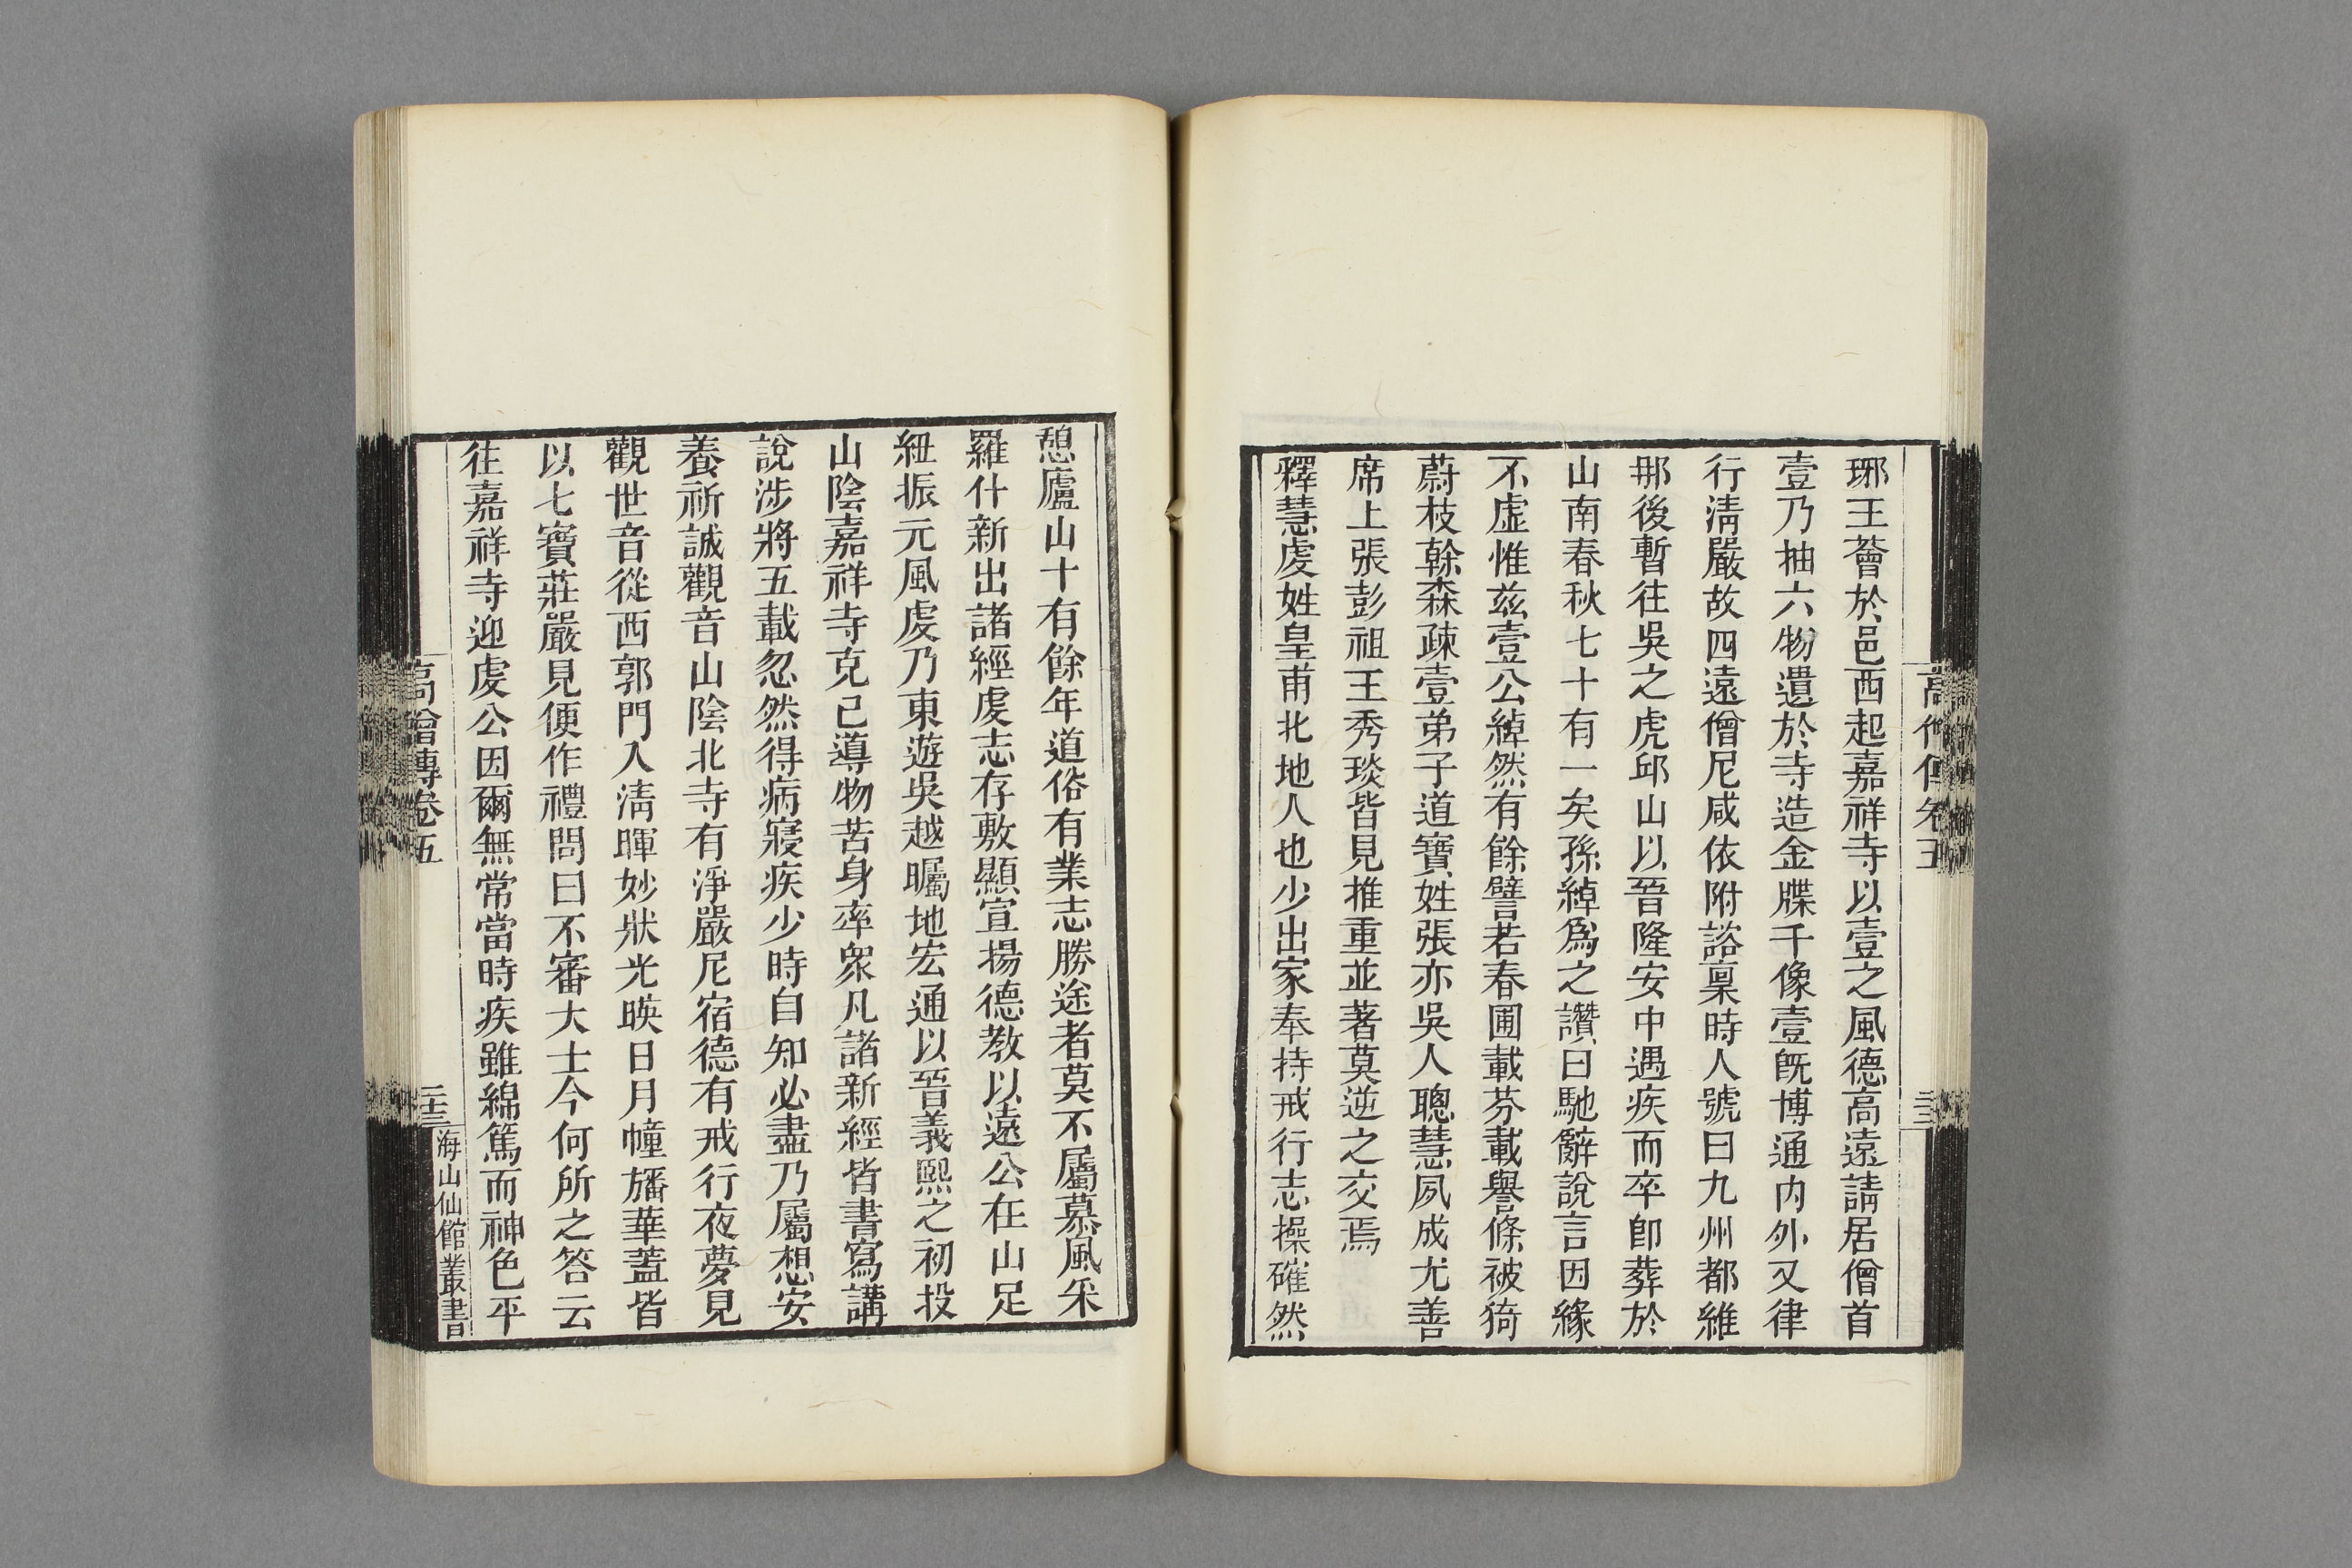 琊王薈於邑西起嘉祥寺以壹之風德高遠請居僧首
壹乃抽六物遺於寺造金牒千像壹旣博通内外又律
行淸嚴故四遠僧尼咸依附諮稟時人號曰九州都維
那後暫往吳之虎邱山以晉隆安中遇疾而卒卽葬於
山南春秋七十有一矣孫綽爲之讚曰馳辭說言因緣
不虛惟茲壹公綽然有餘譬若春圃載芬載譽條被猗
蔚枝榦森疎壹弟子道寶姓張亦吳人聰慧夙成尤善
席上張彭祖王秀琰皆見推重並著莫逆之交焉
釋慧虔姓皇甫北地人也少出家奉持戒行志操確然
憩廬山十有餘年道俗有業志勝途者莫不屬慕風采
羅什新出諸經虔志存敷顯宣揚德教以遠公在山足
紐振元風虔乃東遊吳越矚地宏通以晉義熙之初投
山陰嘉祥寺克己導物苦身率衆凡諸新經皆書寫講
說涉將五載忽然得病寢疾少時自知必盡乃屬想安
養祈誠觀音山陰北寺有淨嚴尼宿德有戒行夜夢見
觀世音從西郭門入淸暉妙狀光暎日月幢旛華蓋皆
以七寶莊嚴見便作禮問曰不審大士今何所之答云
往嘉祥寺迎虔公因爾無常當時疾雖綿篤而神色平
高僧傳卷五
海山仙館叢書